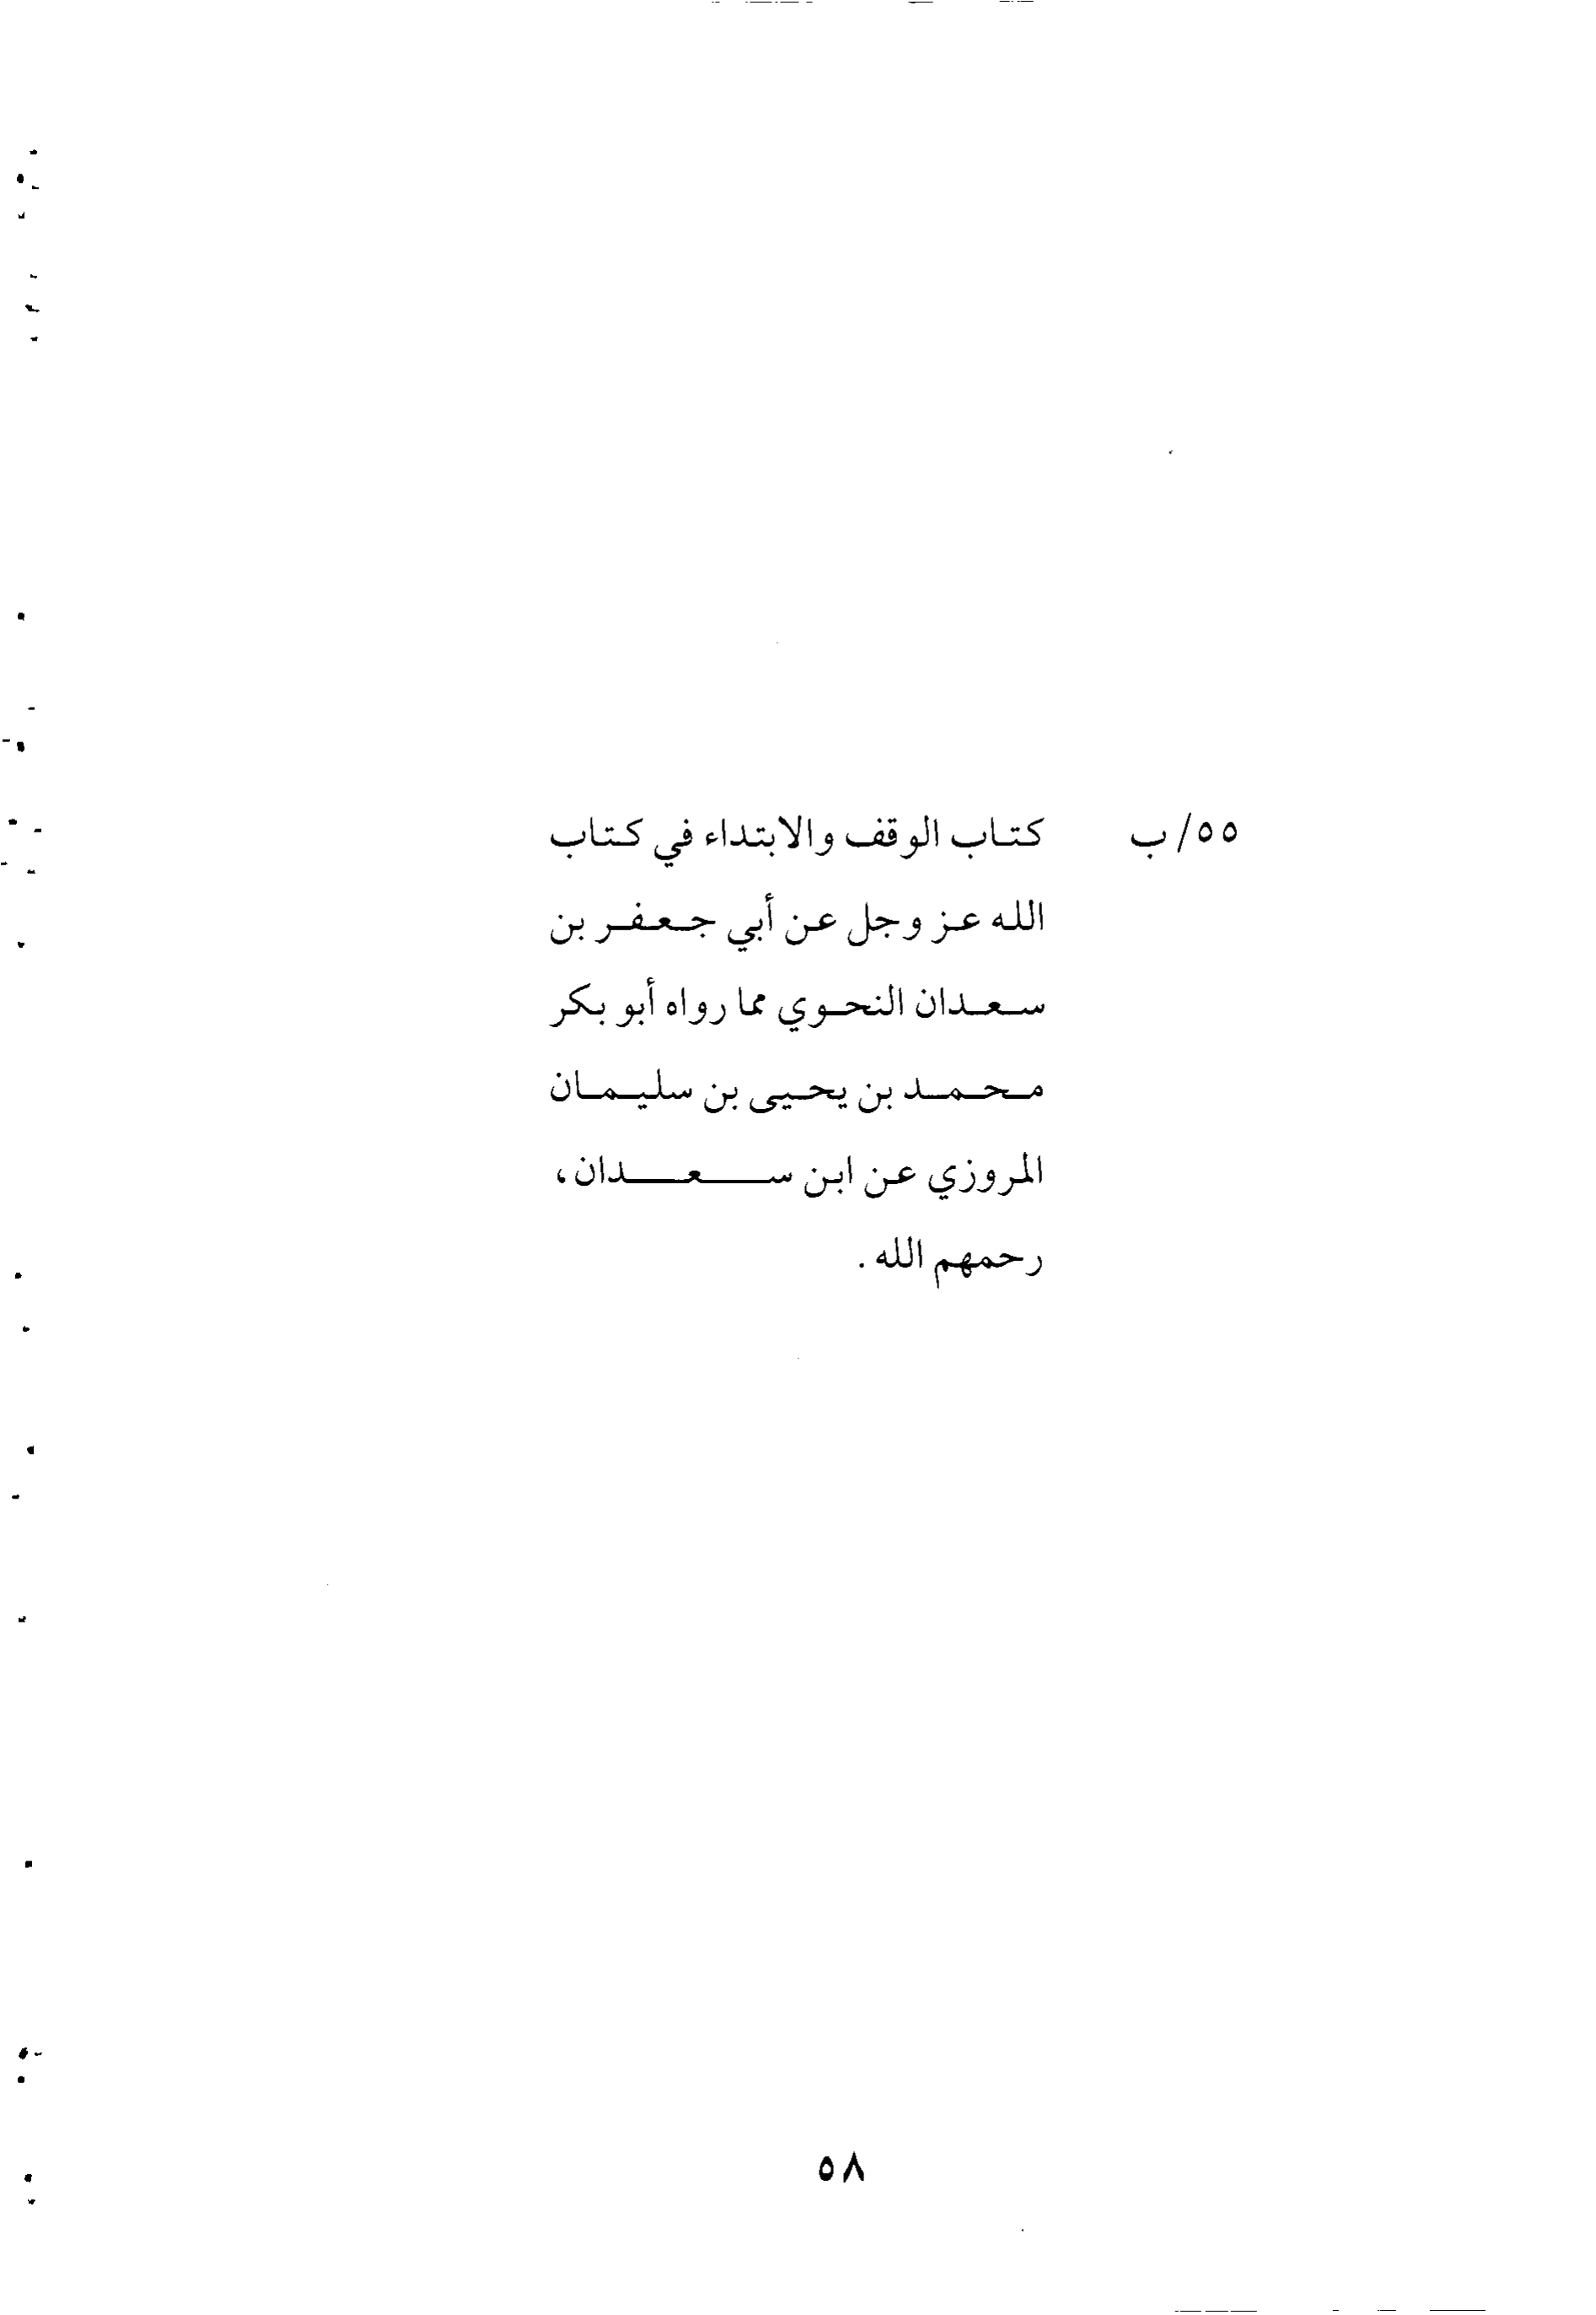 ٥٥/ب كتاب الوقف والابتداء في كتاب
الله عز وجل عن أبي جعفر بن
سعدان النحوي مما رواه أبو بكر
محمد بن يحيى بن سليمان
المروزي عن ابن سعدان،
رحمهم الله.
٥٨